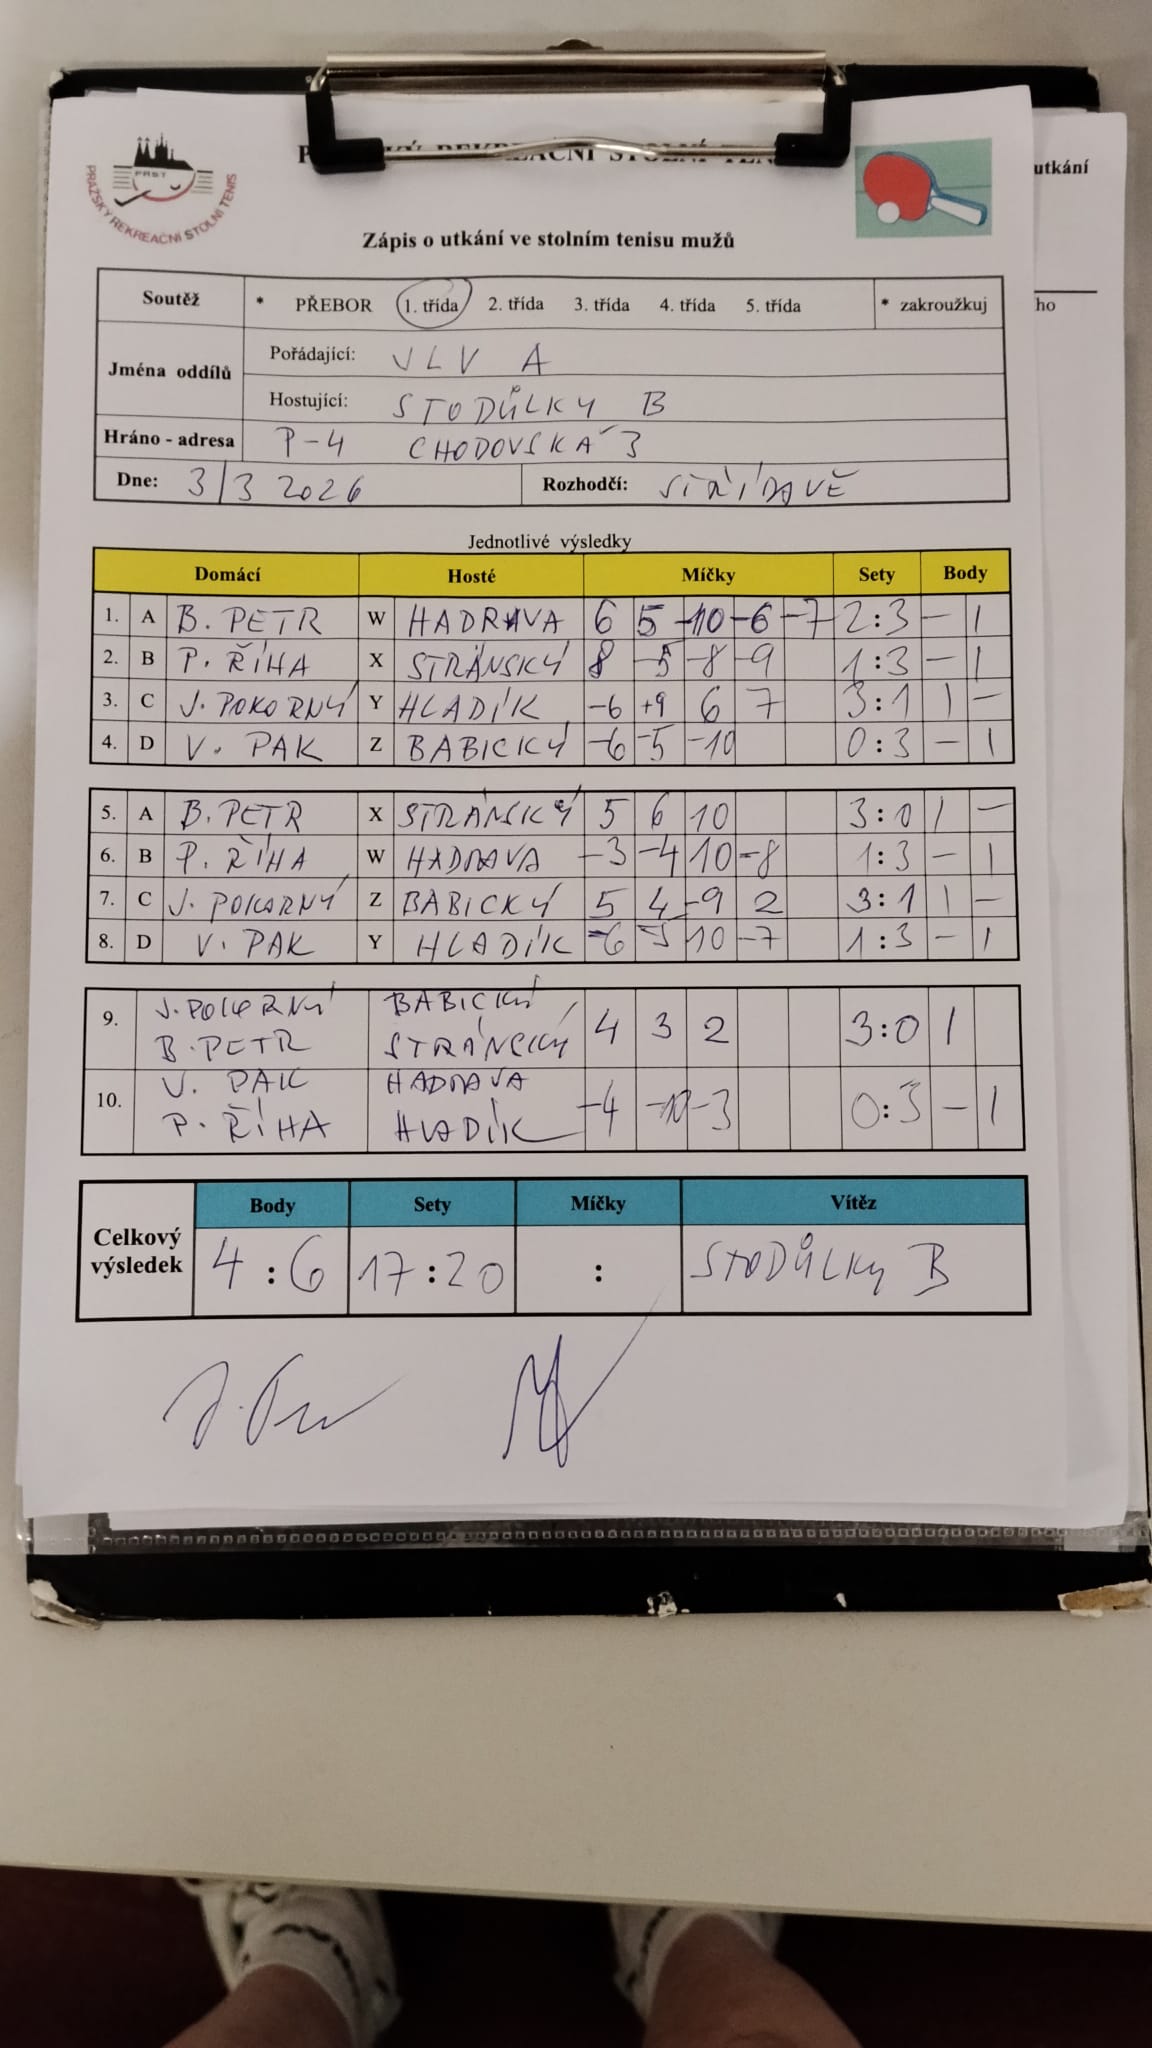 PRST
PRAŽSKÝ REKREAČNÍ STOLNÍ TENIS
utkání
Zápis o utkání ve stolním tenisu mužů
Soutěž * PŘEBOR 1. třída 2. třída 3. třída 4. třída 5. třída * zakroužkuj
ho
Jména oddílů
Pořádající: VLV A
Hostující: STODŮLKY B
Hráno - adresa P-4 CHODOVSKÁ 3
Dne: 3/3 2026 Rozhodčí: STŘÍDAVĚ
Jednotlivé výsledky
Domácí Hosté Míčky Sety Body
1. A B. PETR W HADRAVA 6 5 -10 -6 -7 2:3 - 1
2. B P. ŘÍHA X STRÁNSKÝ 8 -5 -8 -9 1:3 - 1
3. C J. POKORNÝ Y HLADÍK -6 +9 6 7 3:1 1 -
4. D V. PAK Z BABICKÝ -6 -5 -10 0:3 - 1
5. A B. PETR X STRÁNSKÝ 5 6 10 3:0 1 -
6. B P. ŘÍHA W HADRAVA -3 -4 10 -8 1:3 - 1
7. C J. POKORNÝ Z BABICKÝ 5 4 -9 2 3:1 1 -
8. D V. PAK Y HLADÍK -6 -5 10 -7 1:3 - 1
9. J. POKORNÝ BABICKÝ
B. PETR STRÁNSKÝ 4 3 2 3:0 1
10. V. PAK HADRAVA
P. ŘÍHA HLADÍK -4 -10 -3 0:3 - 1
Celkový výsledek
Body Sety Míčky Vítěz
4:6 17:20 : STODŮLKY B